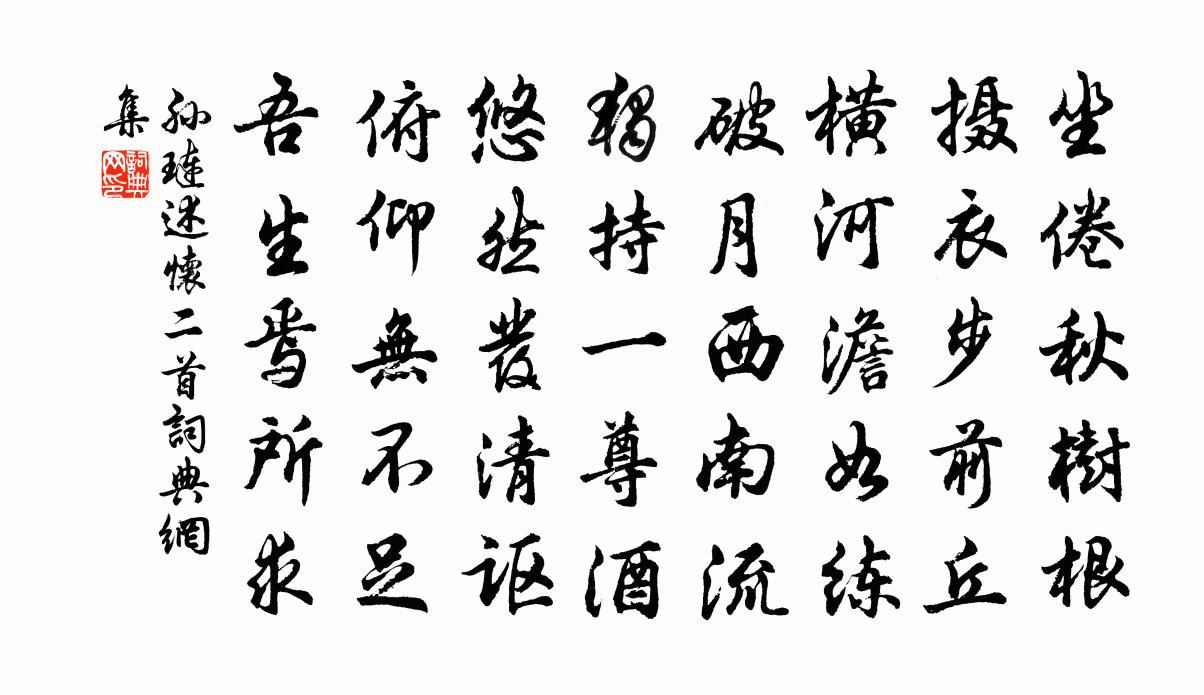 坐倦秋樹根
摄衣步前丘
横河澹如练
破月西南流
独持一尊酒
悠然發清讴
俯仰無不足
吾生焉所求
孙琏述懷二首詞典網
集
詞典网印